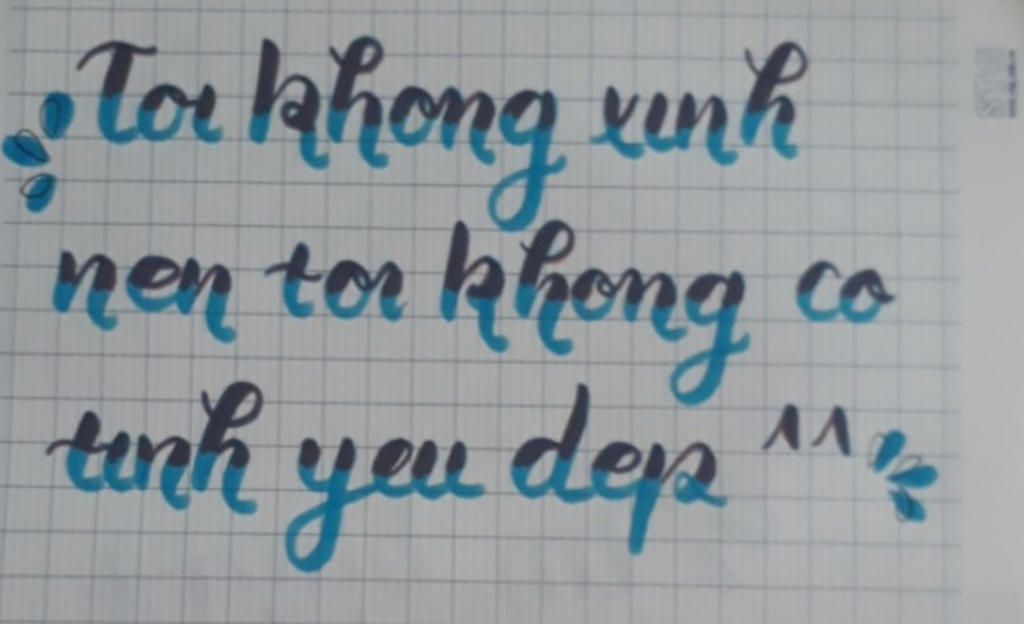 Toi khong xinh
nen toi khong co
tinh yeu dep ^^